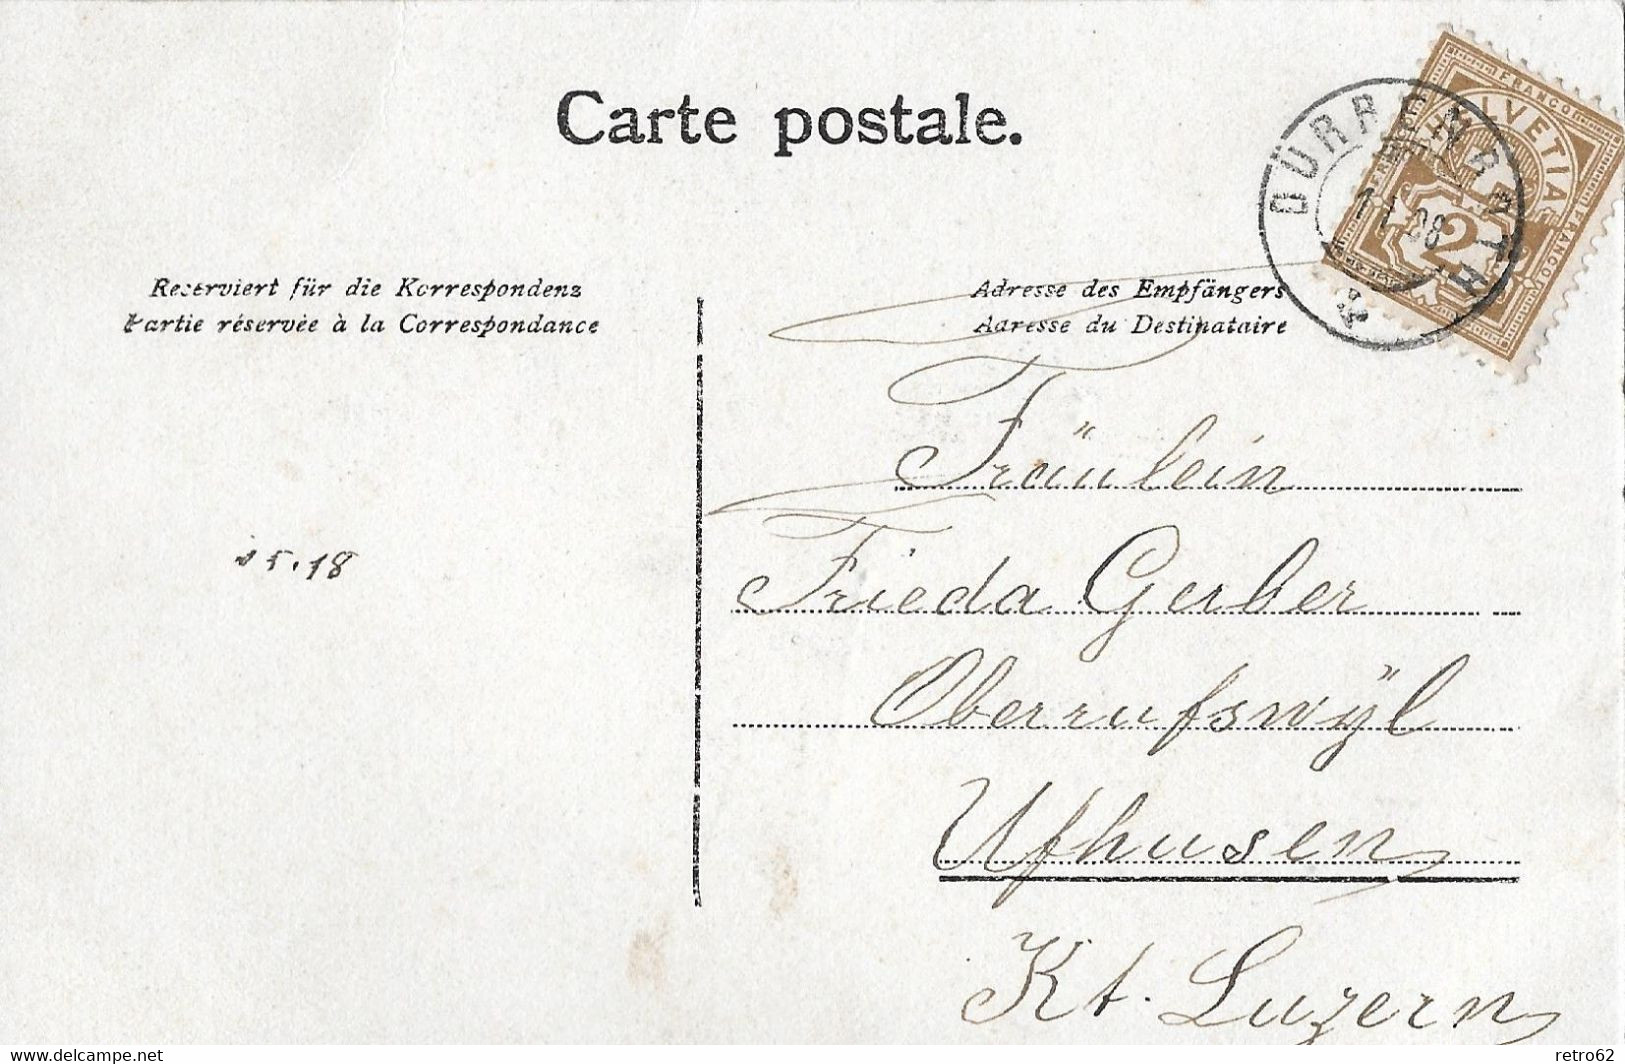 Carte postale.
FRANCO
HELVETIA
FRANCO
2
DÜRRENROTH
1.I.08
Reserviert für die Korrespondenz
Partie réservée à la Correspondance
Adresse des Empfängers
Adresse du Destinataire
Fräulein
Frieda Gerber
Oberrufswÿl
Ufhusen
Kt. Luzern
www.delcampe.net
retro62